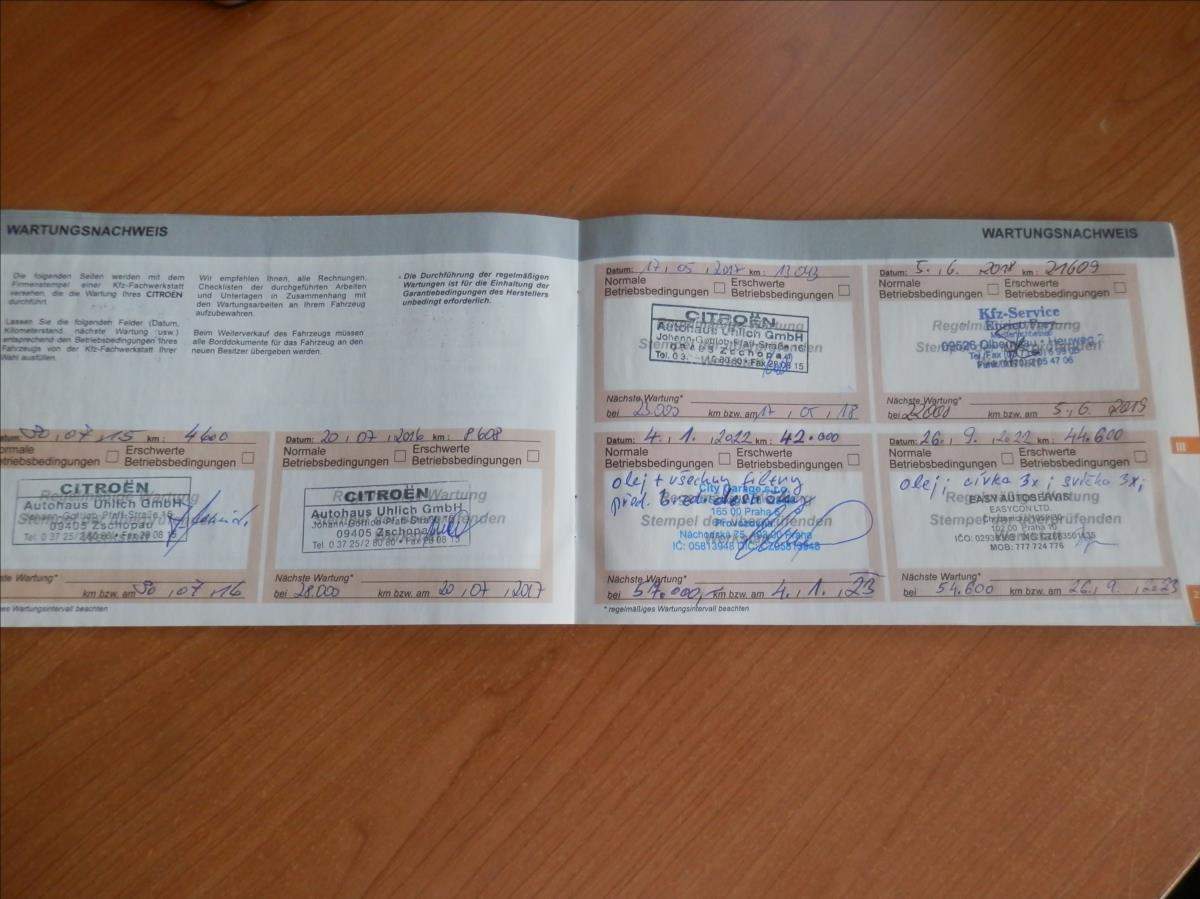 WARTUNGSNACHWEIS
Die folgenden Seiten werden mit dem
Firmenstempel einer Kfz-Fachwerkstatt
versehen, die die Wartung Ihres CITROËN
durchführt.
Lassen Sie die folgenden Felder (Datum,
Kilometerstand, nächste Wartung usw.)
entsprechend den Betriebsbedingungen Ihres
Fahrzeugs von der Kfz-Fachwerkstatt Ihrer
Wahl ausfüllen.
Wir empfehlen Ihnen, alle Rechnungen,
Checklisten der durchgeführten Arbeiten
und Unterlagen in Zusammenhang mit
den Wartungsarbeiten an Ihrem Fahrzeug
aufzubewahren.
Beim Weiterverkauf des Fahrzeugs müssen
alle Borddokumente für das Fahrzeug an den
neuen Besitzer übergeben werden.
Die Durchführung der regelmäßigen
Wartungen ist für die Einhaltung der
Garantiebedingungen des Herstellers
unbedingt erforderlich.
atum: 30,07,15 km: 4600
ormale Erschwerte
etriebsbedingungen Betriebsbedingungen
CITROËN
Autohaus Uhlich GmbH
Johann-Gottlob-Pfaff-Straße 16
09405 Zschopau
Tel. 0 37 25/2 80 80 • Fax 28 08 15
ste Wartung*
km bzw. am 30,07,16
es Wartungsintervall beachten
Datum: 20,07,2016 km: 8608
Normale Erschwerte
Betriebsbedingungen Betriebsbedingungen
CITROËN
Autohaus Uhlich GmbH
Johann-Gottlob-Pfaff-Straße
09405 Zschopau
Tel. 0 37 25/2 80 80 • Fax 28 08 15
Nächste Wartung*
bei 28.000 km bzw. am 20,07,2017
WARTUNGSNACHWEIS
Datum: 17,05,2017 km: 13043
Normale Erschwerte
Betriebsbedingungen Betriebsbedingungen
CITROËN
Autohaus Uhlich GmbH
Johann-Gottlob-Pfaff-Straße
09405 Zschopau
Fax 28 08 15
Nächste Wartung*
bei 23000 km bzw. am 17,05,18
Datum: 5.,6.,2018 km: 21609
Normale Erschwerte
Betriebsbedingungen Betriebsbedingungen
Kfz-Service
09526 Olbernhau
Nächste Wartung*
bei km bzw. am 5.,6.,2019
Datum: 4,1.,2022 km: 42.000
Normale Erschwerte
Betriebsbedingungen Betriebsbedingungen
olej + všechny filtry
City Garage s.r.o.
165 00 Praha 6
Provozovna
Náchodská 25, 193 00 Praha
IČ: 05813948 DIČ: CZ05813948
Stempel des
Nächste Wartung*
bei 57.000 km bzw. am 4.,1.,23
* regelmäßiges Wartungsintervall beachten
Datum: 26,9.,2022 km: 44.600
Normale Erschwerte
Betriebsbedingungen Betriebsbedingungen
olej; cívka 3x; svíčka 3x;
EASY AUTOSERVIS
EASYCON LTD.
102 00 Praha 10
MOB: 777 724 776
Nächste Wartung*
bei 54.600 km bzw. am 26.,9.,2023